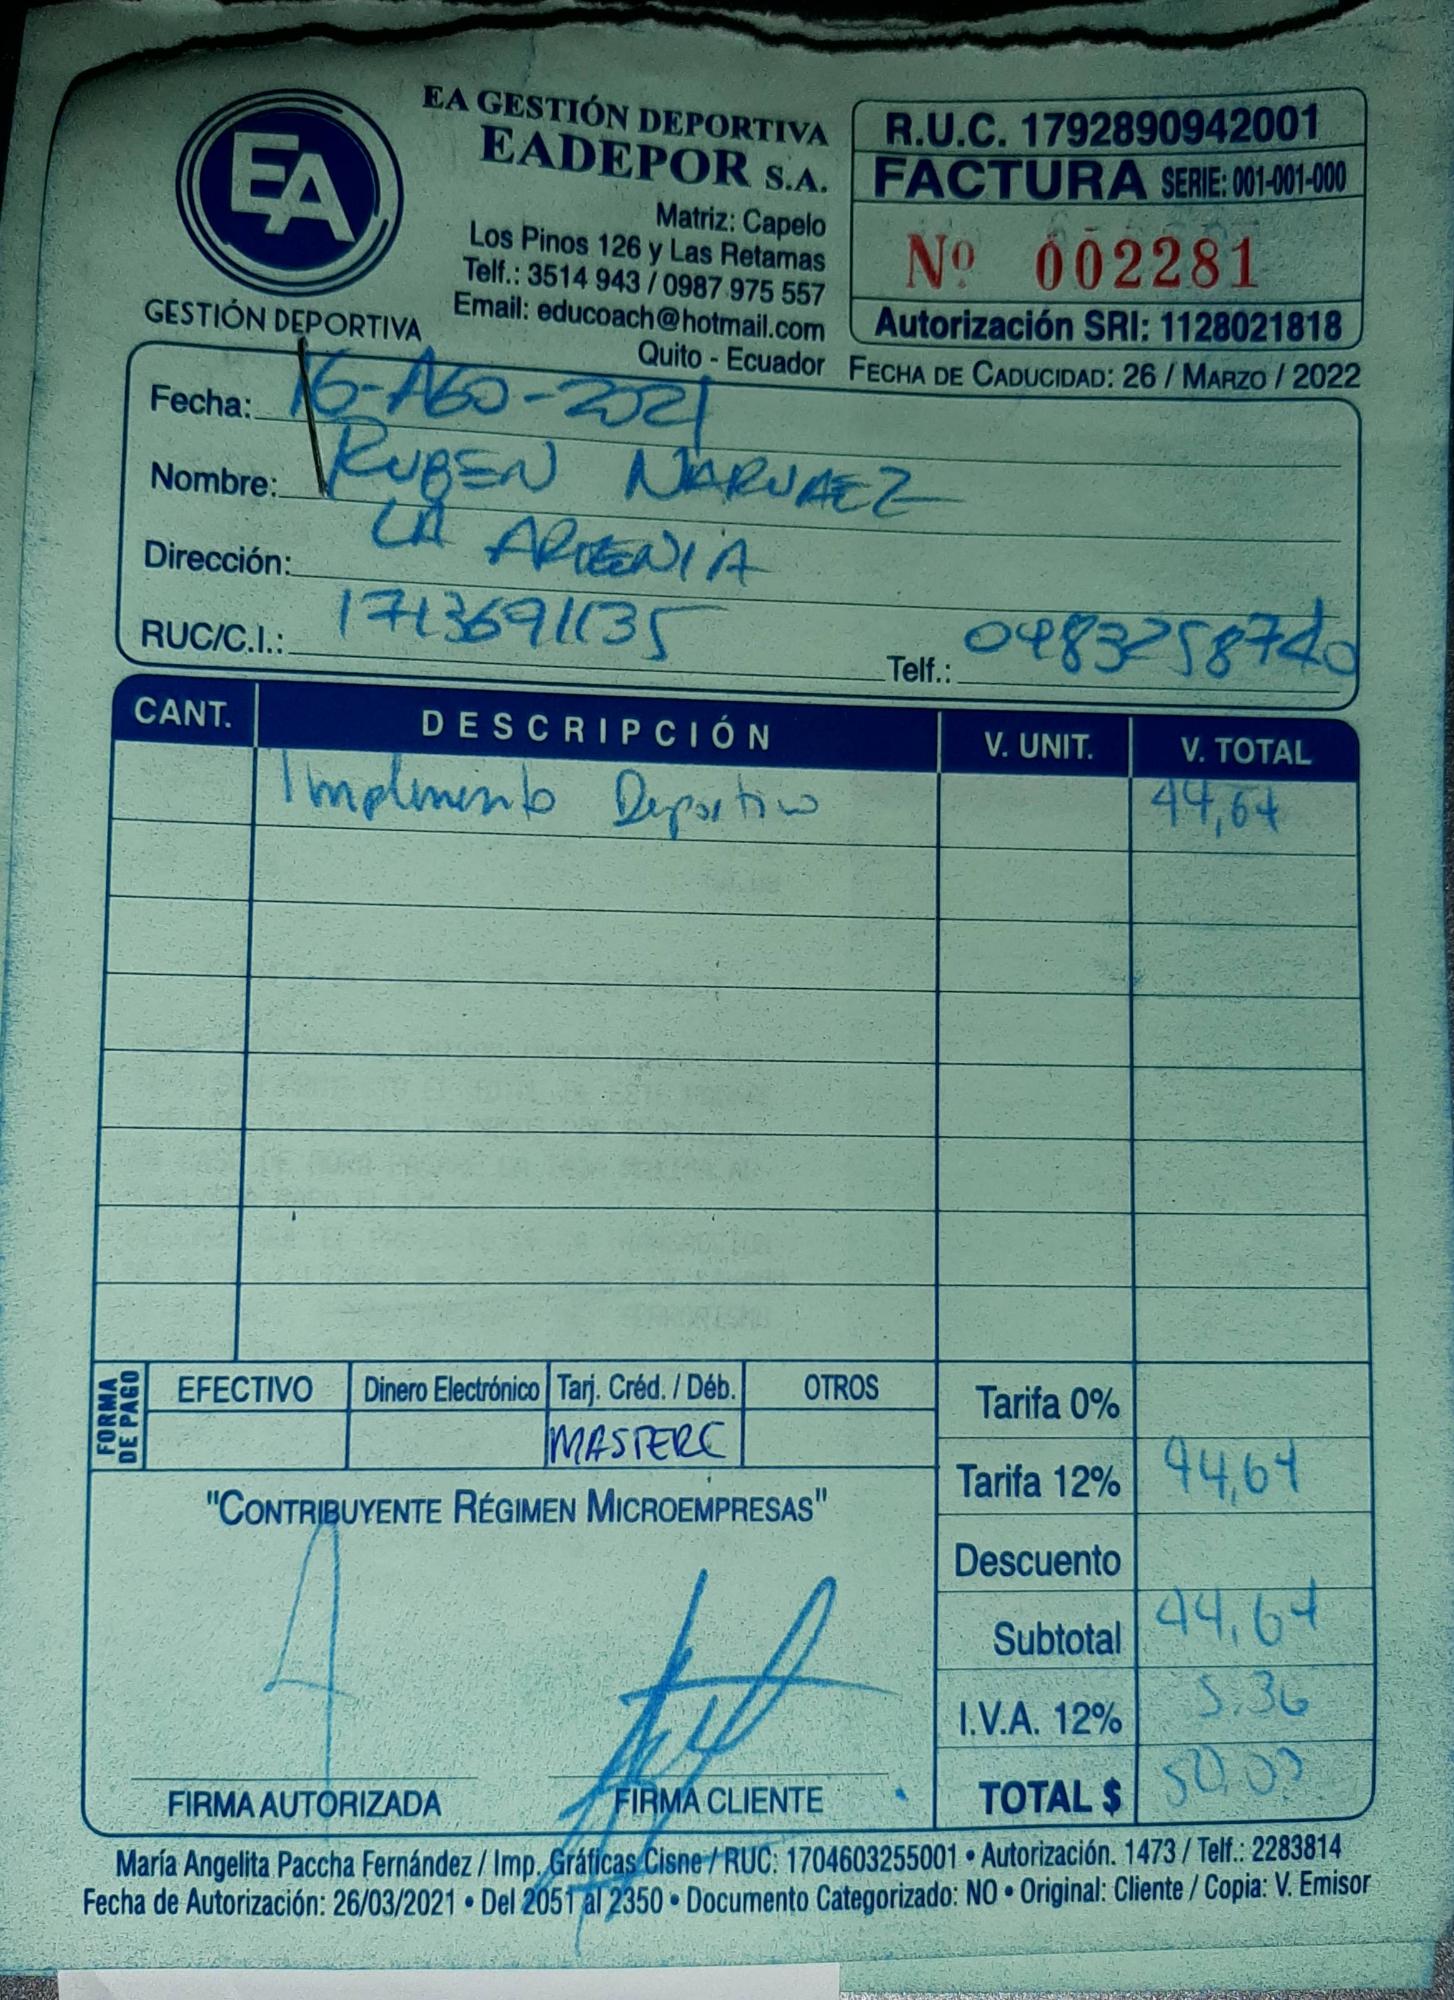 EA
GESTIÓN DEPORTIVA
EA GESTIÓN DEPORTIVA
EADEPOR S.A.
Matriz: Capelo
Los Pinos 126 y Las Retamas
Telf.: 3514 943 / 0987 975 557
Email: educoach@hotmail.com
Quito - Ecuador
R.U.C. 1792890942001
FACTURA SERIE: 001-001-000
Nº 002281
Autorización SRI: 1128021818
FECHA DE CADUCIDAD: 26 / MARZO / 2022
Fecha: 16-AGO-2021
Nombre: RUBEN NARVAEZ
Dirección: LA ARMENIA
RUC/C.I.: 1713691135 Telf.: 0983258740
CANT. DESCRIPCIÓN V. UNIT. V. TOTAL
Implemento Deportivo 44,64
FORMA DE PAGO
EFECTIVO Dinero Electrónico Tarj. Créd. / Déb. OTROS
MASTERC
Tarifa 0%
Tarifa 12% 44,64
Descuento
Subtotal 44,64
I.V.A. 12% 5.36
TOTAL $ 50,00
"CONTRIBUYENTE RÉGIMEN MICROEMPRESAS"
FIRMA AUTORIZADA FIRMA CLIENTE
María Angelita Paccha Fernández / Imp. Gráficas Cisne / RUC: 1704603255001 • Autorización. 1473 / Telf.: 2283814
Fecha de Autorización: 26/03/2021 • Del 2051 al 2350 • Documento Categorizado: NO • Original: Cliente / Copia: V. Emisor